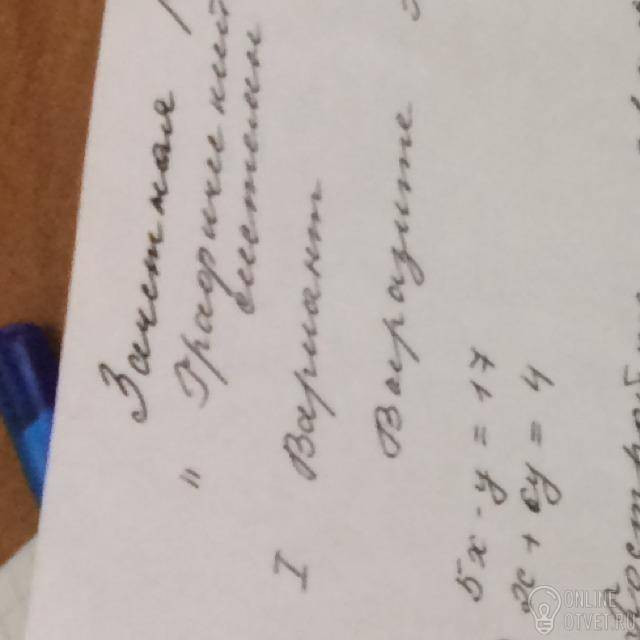 Зачетная
" Графичес
систем
I Вариант
Выразите
5x - y = 17
x + 6y = 4
ONLINE
OTVET.RU